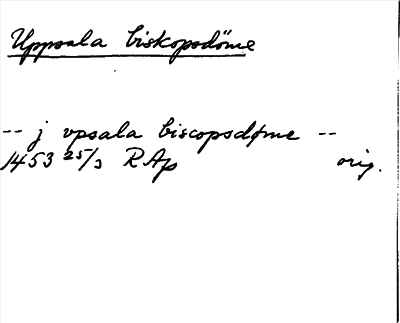 Uppsala biskopsdöme
-- j vpsala biscopsdøme --
1453 25/3 RAp orig.